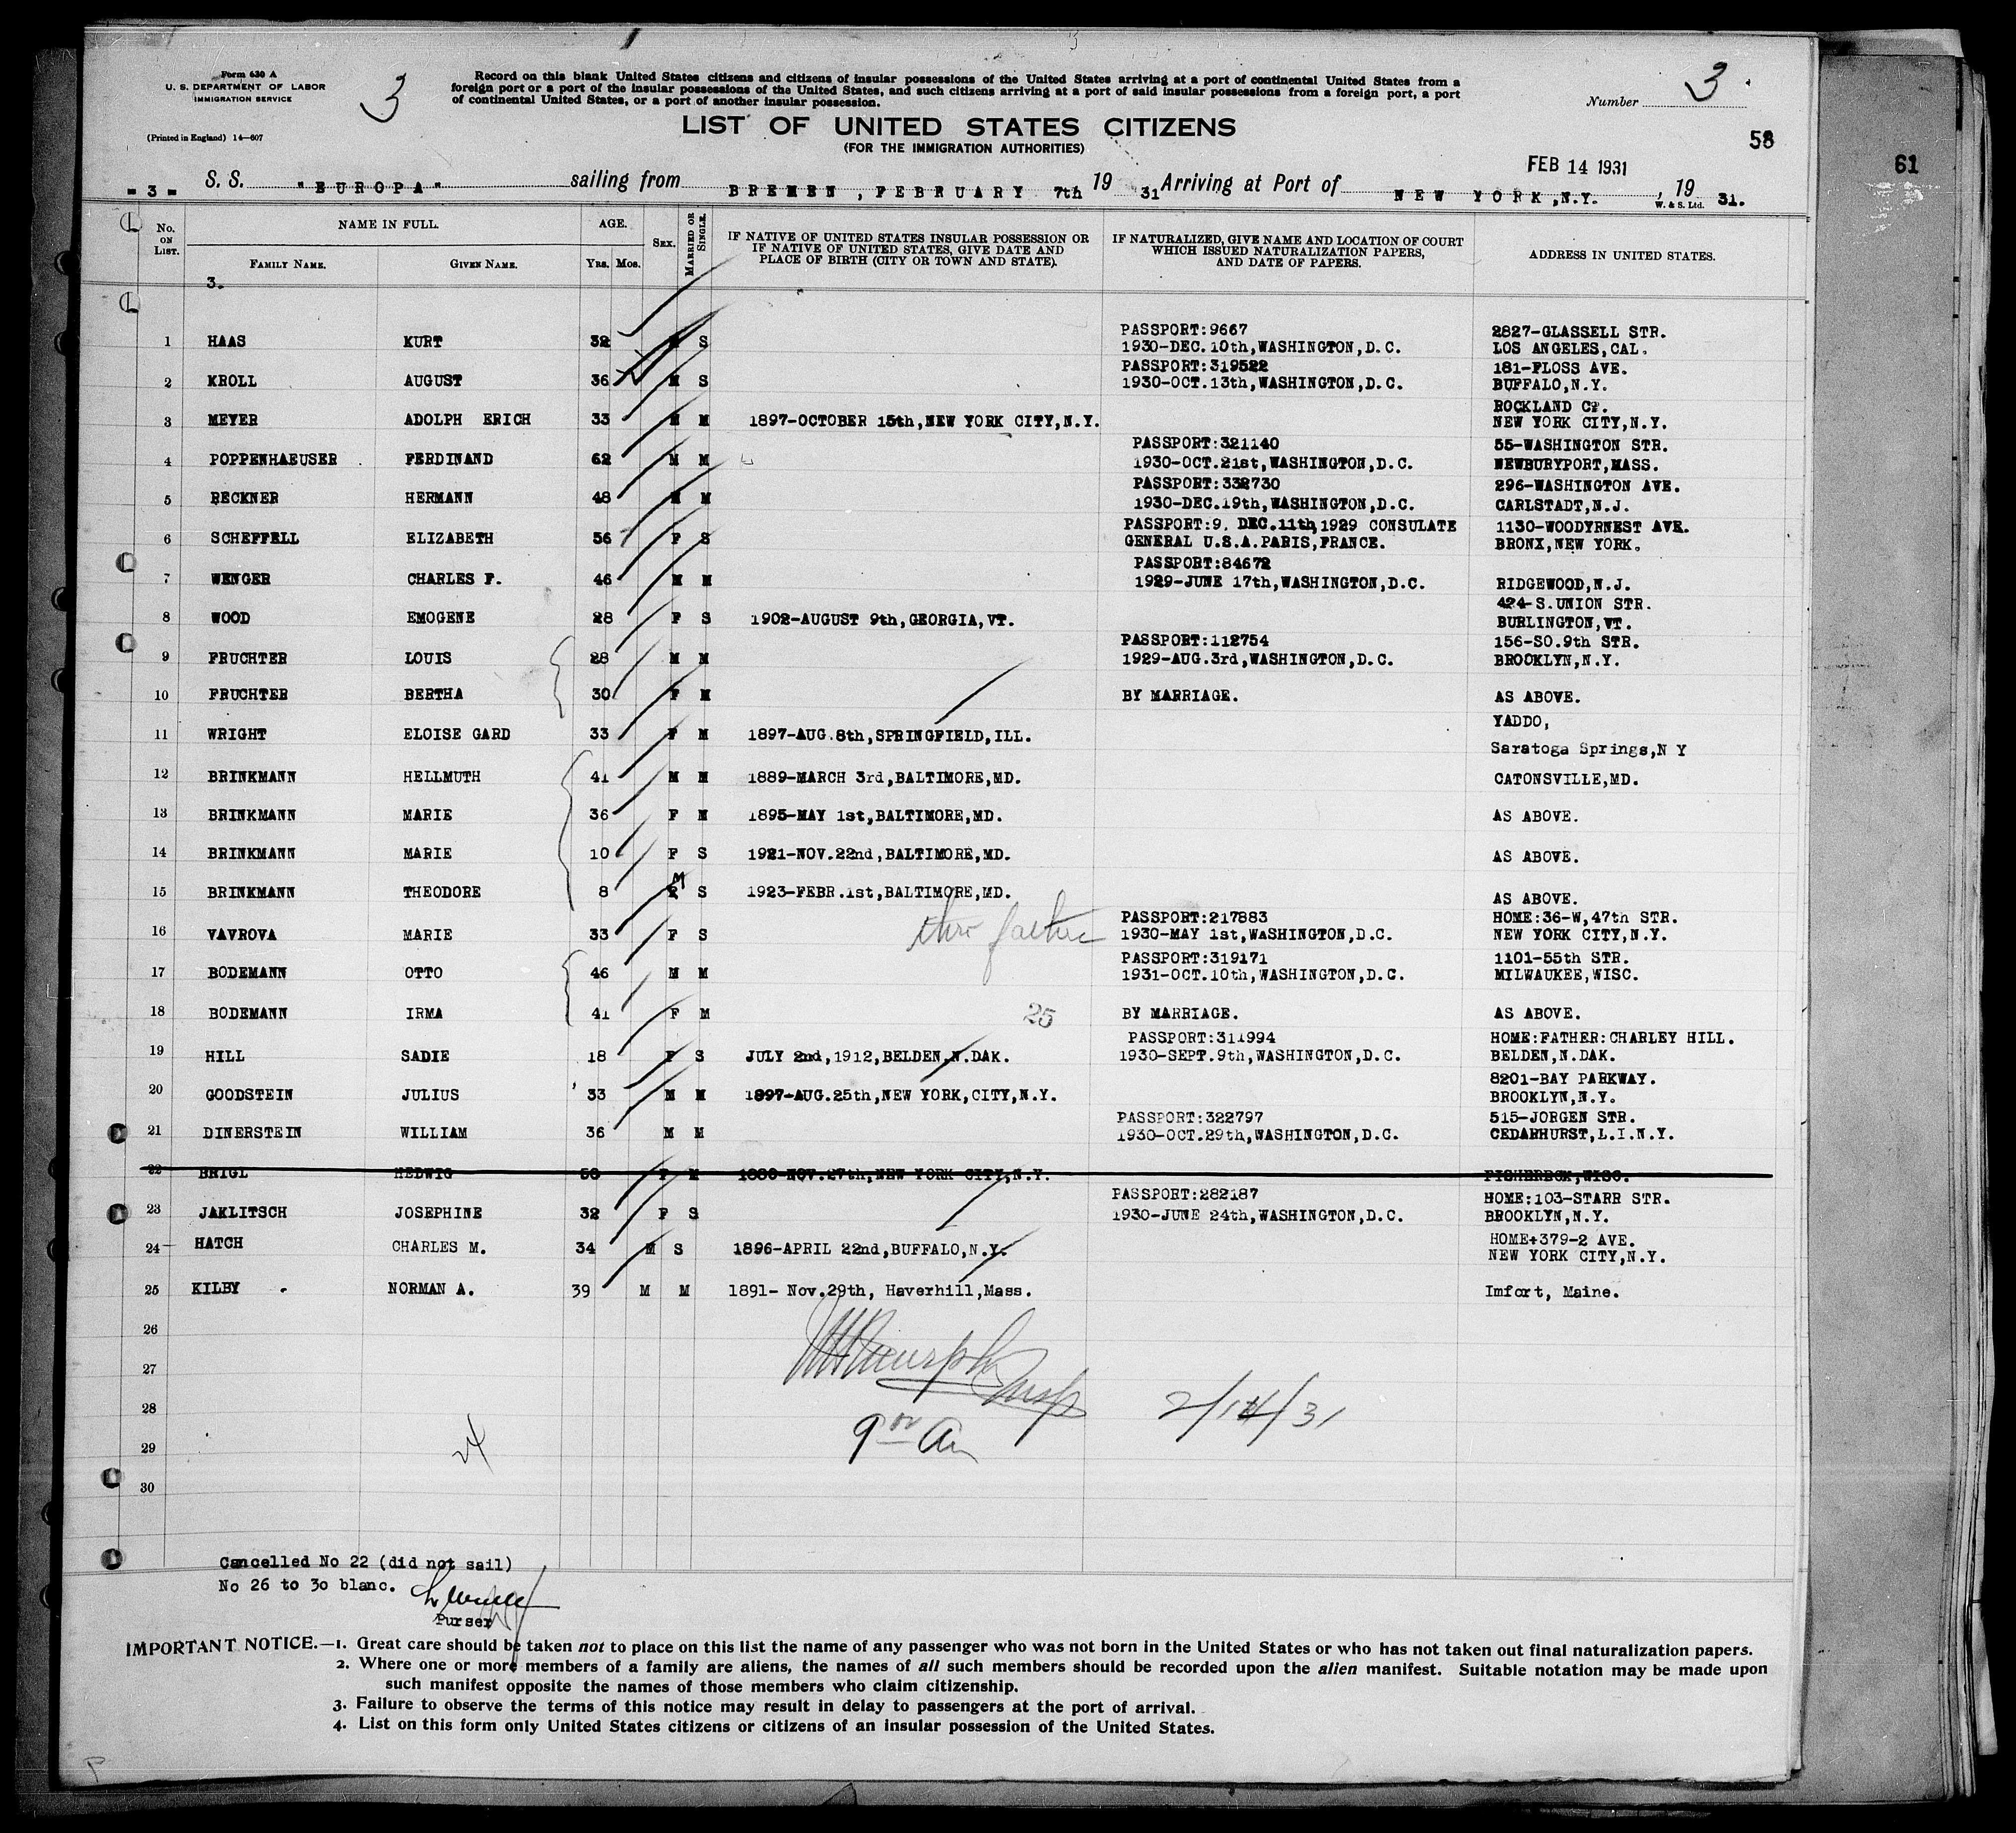 Form 630 A
U. S. DEPARTMENT OF LABOR
IMMIGRATION SERVICE
(Printed in England) 14—607
3
Record on this blank United States citizens and citizens of insular possessions of the United States arriving at a port of continental United States from a
foreign port or a port of the insular possessions of the United States, and such citizens arriving at a port of said insular possessions from a foreign port, a port
of continental United States, or a port of another insular possession.
Number 3
LIST OF UNITED STATES CITIZENS
(FOR THE IMMIGRATION AUTHORITIES)
58
61
FEB 14 1931
- 3 - S. S. "EUROPA" sailing from BREMEN, FEBRUARY 7th 1931 Arriving at Port of NEW YORK, N.Y. , 19 31.
W. & S. Ltd.
No. ON LIST. NAME IN FULL. AGE. SEX. MARRIED OR SINGLE. IF NATIVE OF UNITED STATES INSULAR POSSESSION OR IF NATIVE OF UNITED STATES, GIVE DATE AND PLACE OF BIRTH (CITY OR TOWN AND STATE). IF NATURALIZED, GIVE NAME AND LOCATION OF COURT WHICH ISSUED NATURALIZATION PAPERS, AND DATE OF PAPERS. ADDRESS IN UNITED STATES.
FAMILY NAME. GIVEN NAME. Yrs. Mos.
3.
PASSPORT:9667 2827-GLASSELL STR.
1 HAAS KURT 32 S 1930-DEC.10th,WASHINGTON,D.C. LOS ANGELES,CAL.
PASSPORT:319522 181-FLOSS AVE.
2 KROLL AUGUST 36 M S 1930-OCT.13th,WASHINGTON,D.C. BUFFALO,N.Y.
ROCKLAND Co.
3 MEYER ADOLPH ERICH 33 M M 1897-OCTOBER 15th,NEW YORK CITY,N.Y. NEW YORK CITY,N.Y.
PASSPORT:321140 55-WASHINGTON STR.
4 POPPENHAEUSER FERDINAND 62 M M 1930-OCT.21st,WASHINGTON,D.C. NEWBURYPORT,MASS.
PASSPORT:332730 296-WASHINGTON AVE.
5 RECKNER HERMANN 48 M M 1930-DEC.19th,WASHINGTON,D.C. CARLSTADT,N.J.
PASSPORT:9. DEC.11th,1929 CONSULATE 1130-WOODYRNEST AVE.
6 SCHEFFELL ELIZABETH 56 F S GENERAL U.S.A.PARIS,FRANCE. BRONX,NEW YORK.
PASSPORT:84672
7 WENGER CHARLES F. 46 M M 1929-JUNE 17th,WASHINGTON,D.C. RIDGEWOOD,N.J.
424-S.UNION STR.
8 WOOD EMOGENE 28 F S 1902-AUGUST 9th,GEORGIA,VT. BURLINGTON,VT.
PASSPORT:112754 156-SO.9th STR.
9 FRUCHTER LOUIS 28 M M 1929-AUG.3rd,WASHINGTON,D.C. BROOKLYN,N.Y.
10 FRUCHTER BERTHA 30 F M BY MARRIAGE. AS ABOVE.
YADDO,
11 WRIGHT ELOISE GARD 33 F M 1897-AUG.8th,SPRINGFIELD,ILL.
Saratoga Springs,N Y
12 BRINKMANN HELLMUTH 41 M M 1889-MARCH 3rd,BALTIMORE,MD. CATONSVILLE,MD.
13 BRINKMANN MARIE 36 F M 1895-MAY 1st,BALTIMORE,MD. AS ABOVE.
14 BRINKMANN MARIE 10 F S 1921-NOV.22nd,BALTIMORE,MD. AS ABOVE.
15 BRINKMANN THEODORE 8 M S 1923-FEBR.1st,BALTIMORE,MD. AS ABOVE.
PASSPORT:217883 HOME:36-W,47th STR.
16 VAVROVA MARIE 33 F S thro father 1930-MAY 1st,WASHINGTON,D.C. NEW YORK CITY,N.Y.
PASSPORT:319171 1101-55th STR.
17 BODEMANN OTTO 46 M M 1931-OCT.10th,WASHINGTON,D.C. MILWAUKEE,WISC.
18 BODEMANN IRMA 41 F M 25 BY MARRIAGE. AS ABOVE.
PASSPORT:311994 HOME:FATHER:CHARLEY HILL.
19 HILL SADIE 18 F S JULY 2nd,1912,BELDEN,N.DAK. 1930-SEPT.9th,WASHINGTON,D.C. BELDEN,N.DAK.
8201-BAY PARKWAY.
20 GOODSTEIN JULIUS 33 M M 1897-AUG.25th,NEW YORK,CITY,N.Y. BROOKLYN,N.Y.
PASSPORT:322797 515-JORGEN STR.
21 DINERSTEIN WILLIAM 36 M M 1930-OCT.29th,WASHINGTON,D.C. CEDARHURST,L.I.N.Y.
22 BRIGL HEDWIG F M NOV.27th,NEW YORK CITY,N.Y.
PASSPORT:282187 HOME:103-STARR STR.
23 JAKLITSCH JOSEPHINE 32 F S 1930-JUNE 24th,WASHINGTON,D.C. BROOKLYN,N.Y.
HOME+379-2 AVE.
24 HATCH CHARLES M. 34 M S 1896-APRIL 22nd,BUFFALO,N.Y. NEW YORK CITY,N.Y.
25 KILBY NORMAN A. 39 M M 1891- Nov.29th, Haverhill,Mass. Imfort, Maine.
26
27
28 2/14/31
29 24 9 00 Am
30
Cancelled No 22 (did not sail)
No 26 to 30 blanc.
Purser
IMPORTANT NOTICE.—1. Great care should be taken not to place on this list the name of any passenger who was not born in the United States or who has not taken out final naturalization papers.
2. Where one or more members of a family are aliens, the names of all such members should be recorded upon the alien manifest. Suitable notation may be made upon
such manifest opposite the names of those members who claim citizenship.
3. Failure to observe the terms of this notice may result in delay to passengers at the port of arrival.
4. List on this form only United States citizens or citizens of an insular possession of the United States.